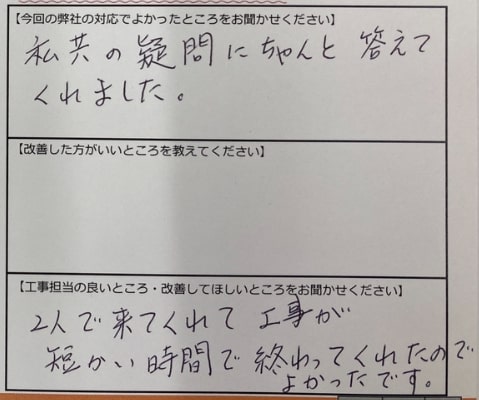 【今回の弊社の対応でよかったところをお聞かせください】
私共の疑問にちゃんと答えて
くれました。
【改善した方がいいところを教えてください】
【工事担当の良いところ・改善してほしいところをお聞かせください】
2人で来てくれて工事が
短かい時間で終わってくれたので
よかったです。